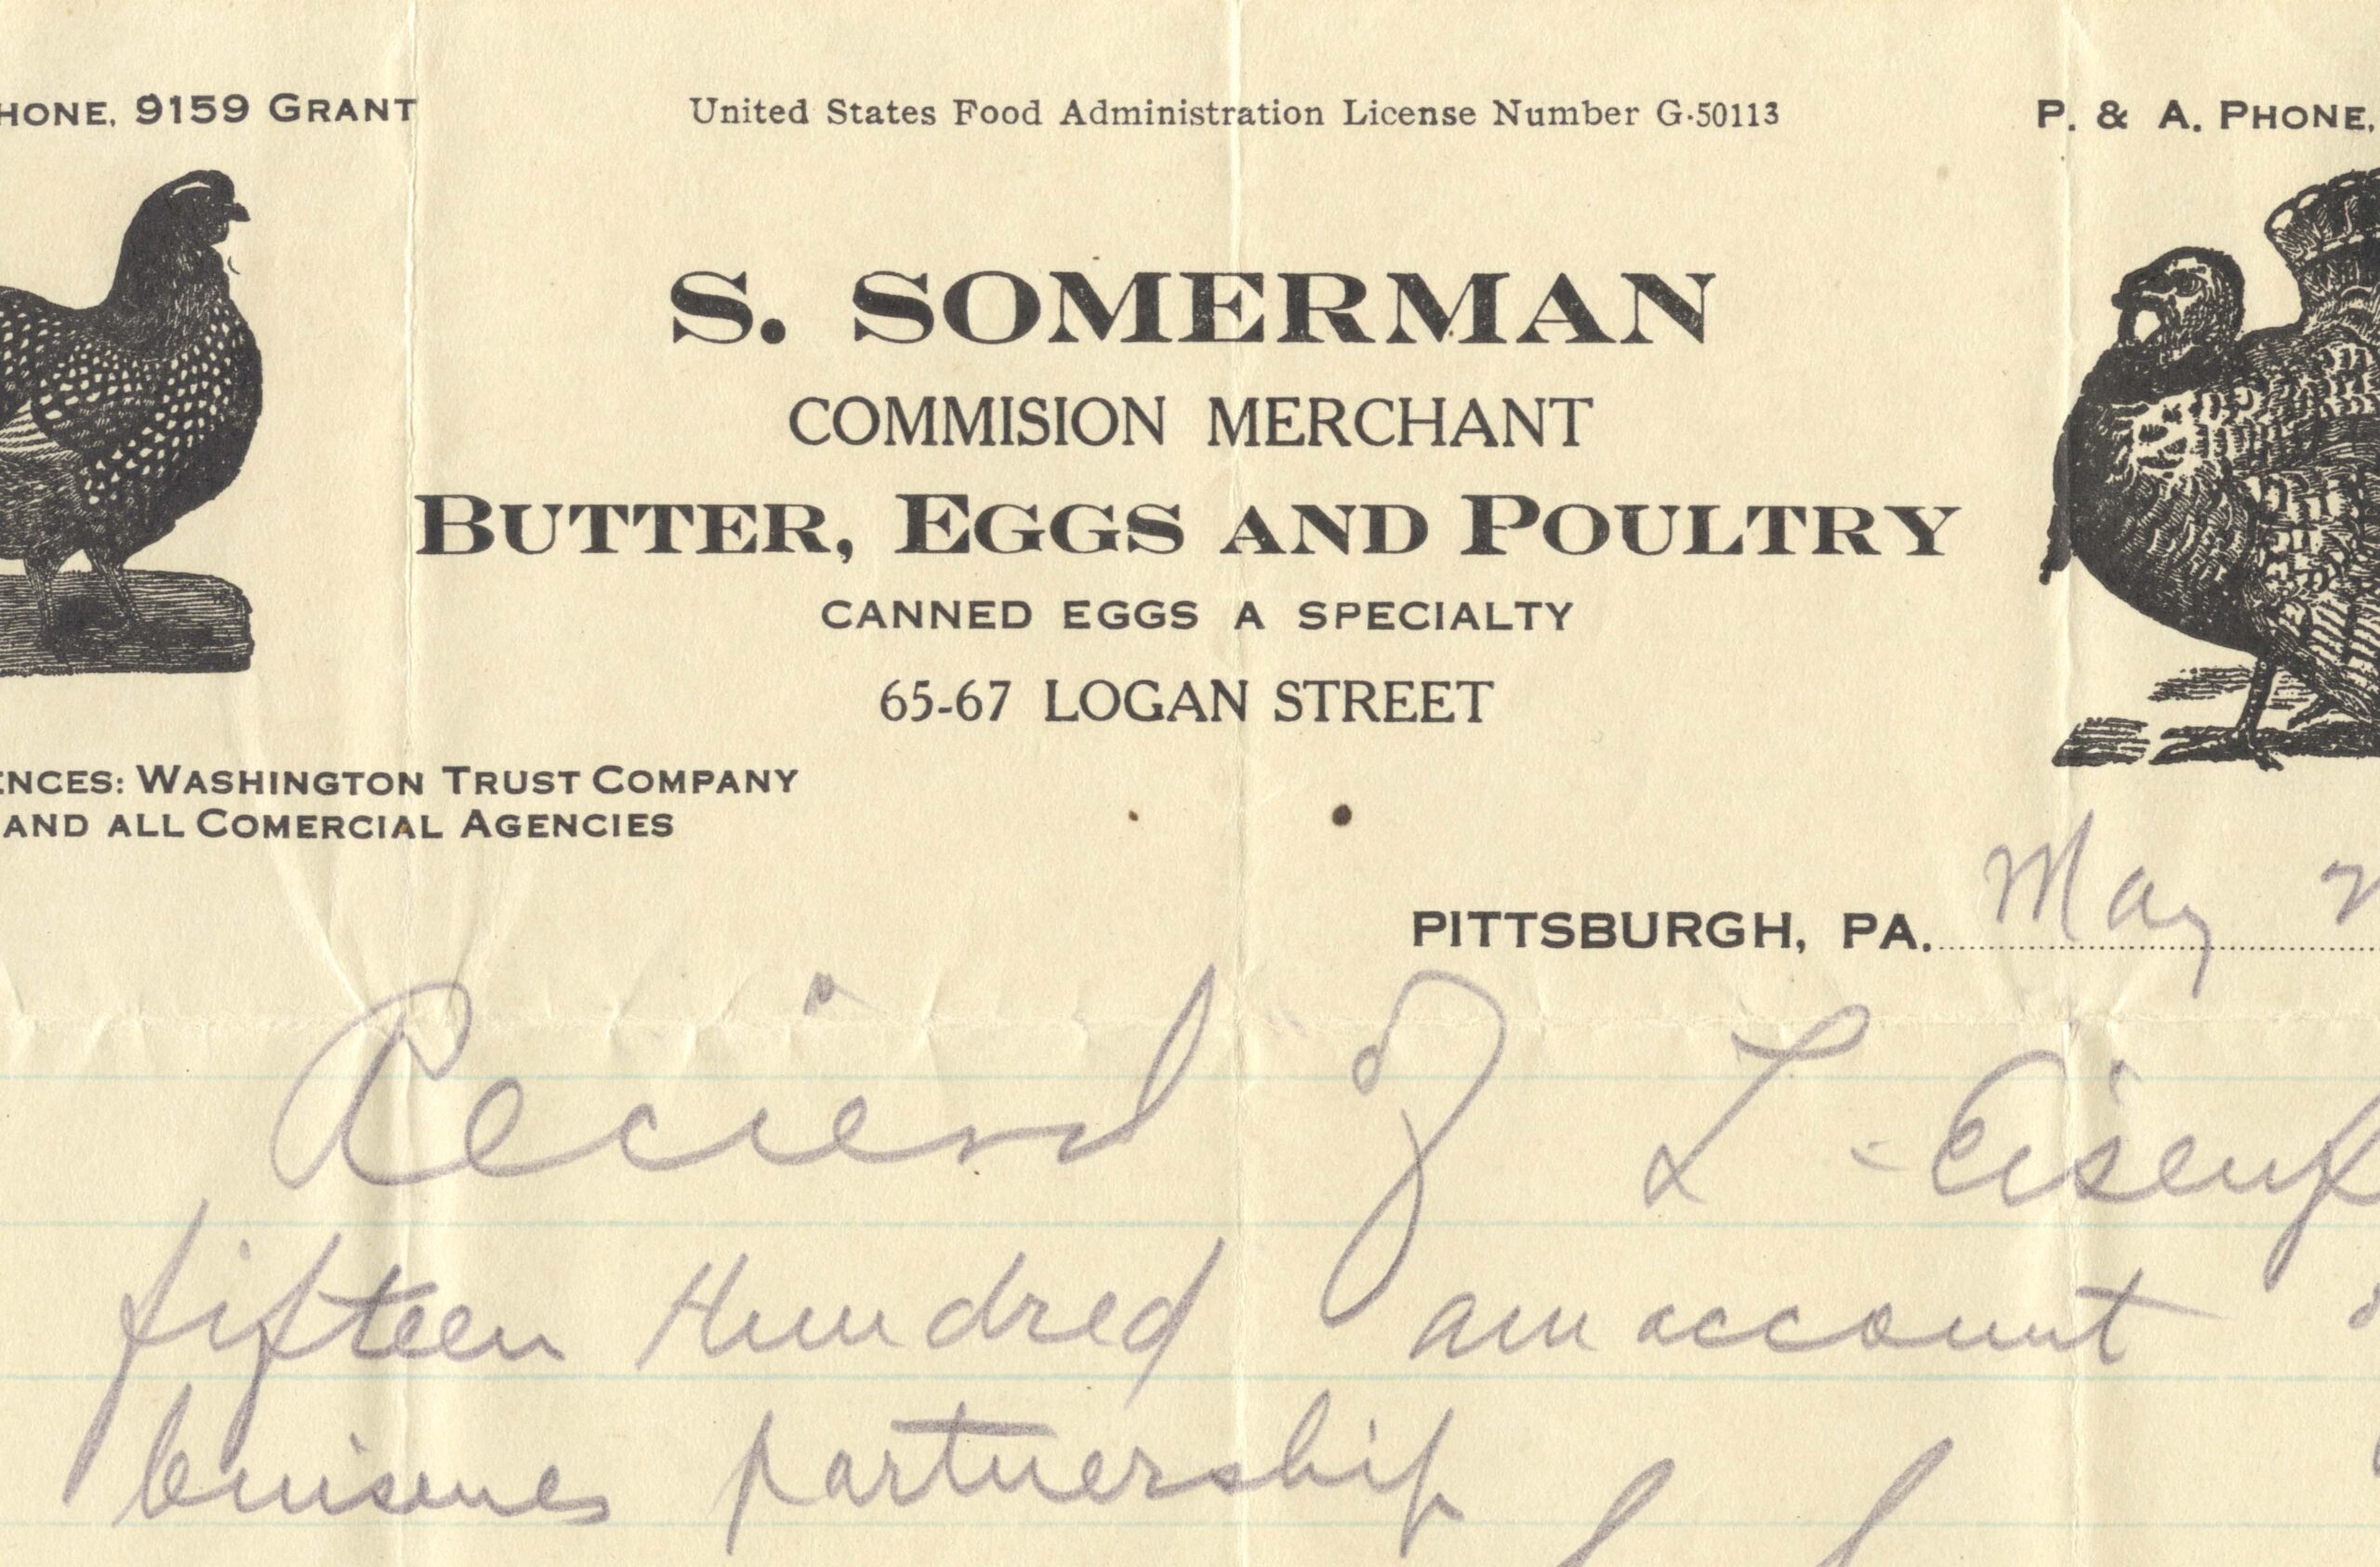 HONE, 9159 GRANT
United States Food Administration License Number G-50113
P. & A. PHONE,
S. SOMERMAN
COMMISION MERCHANT
BUTTER, EGGS AND POULTRY
CANNED EGGS A SPECIALTY
65-67 LOGAN STREET
ENCES: WASHINGTON TRUST COMPANY
AND ALL COMERCIAL AGENCIES
PITTSBURGH, PA. May 2
Recievd of L - Eisenf
fifteen Hundred am account
buisenes partnership